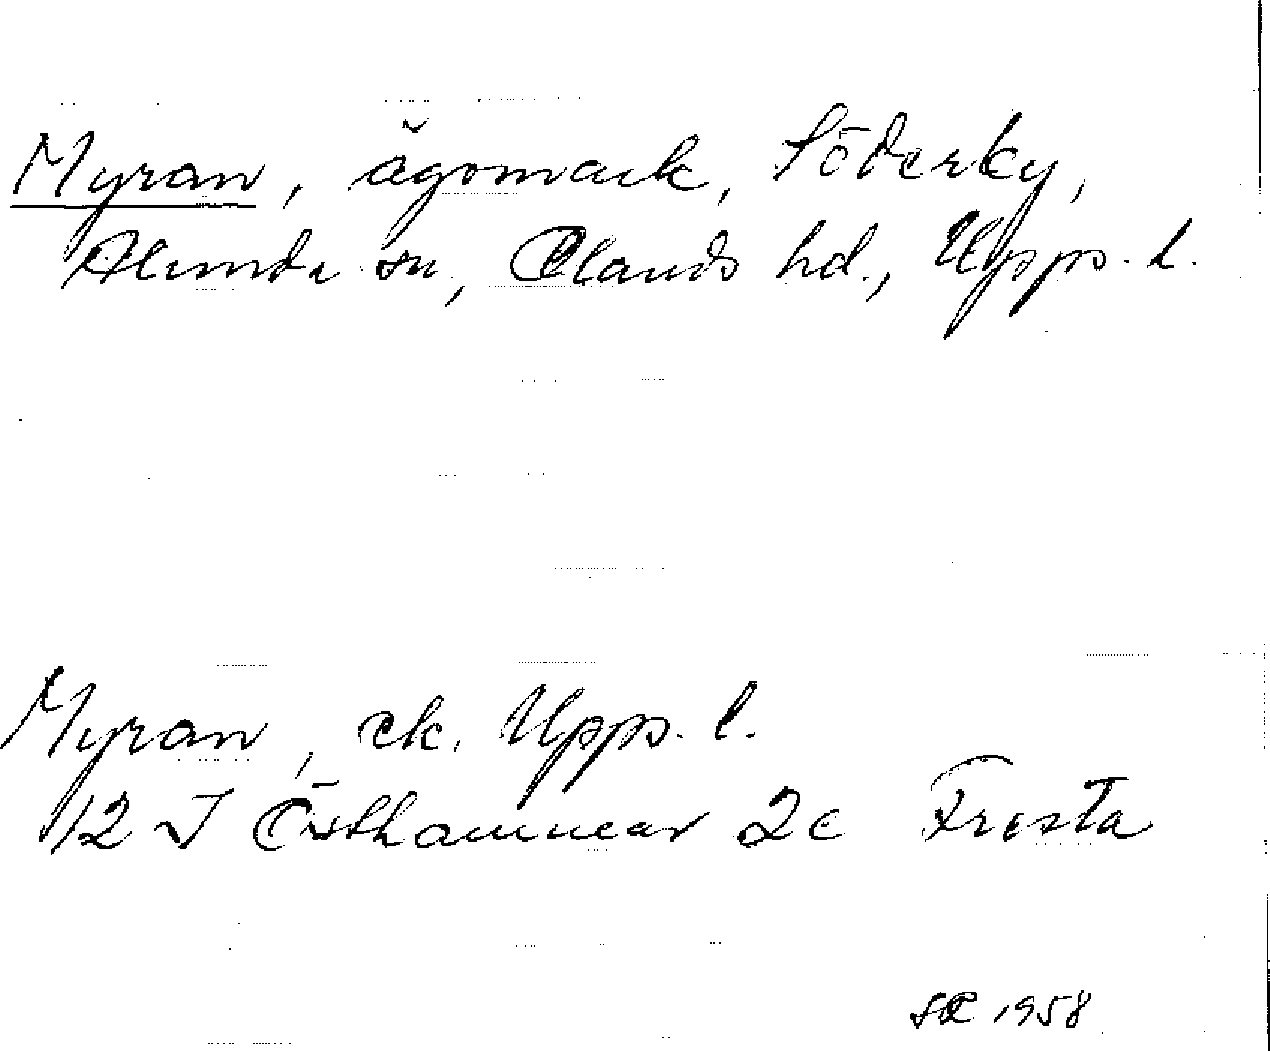 Myran, ägomark, Söderby,
Alunda sn, Olands hd., Upps. l.
Myran, ek. Upps. l.
12 I Östhammar 2c Frösta
1958